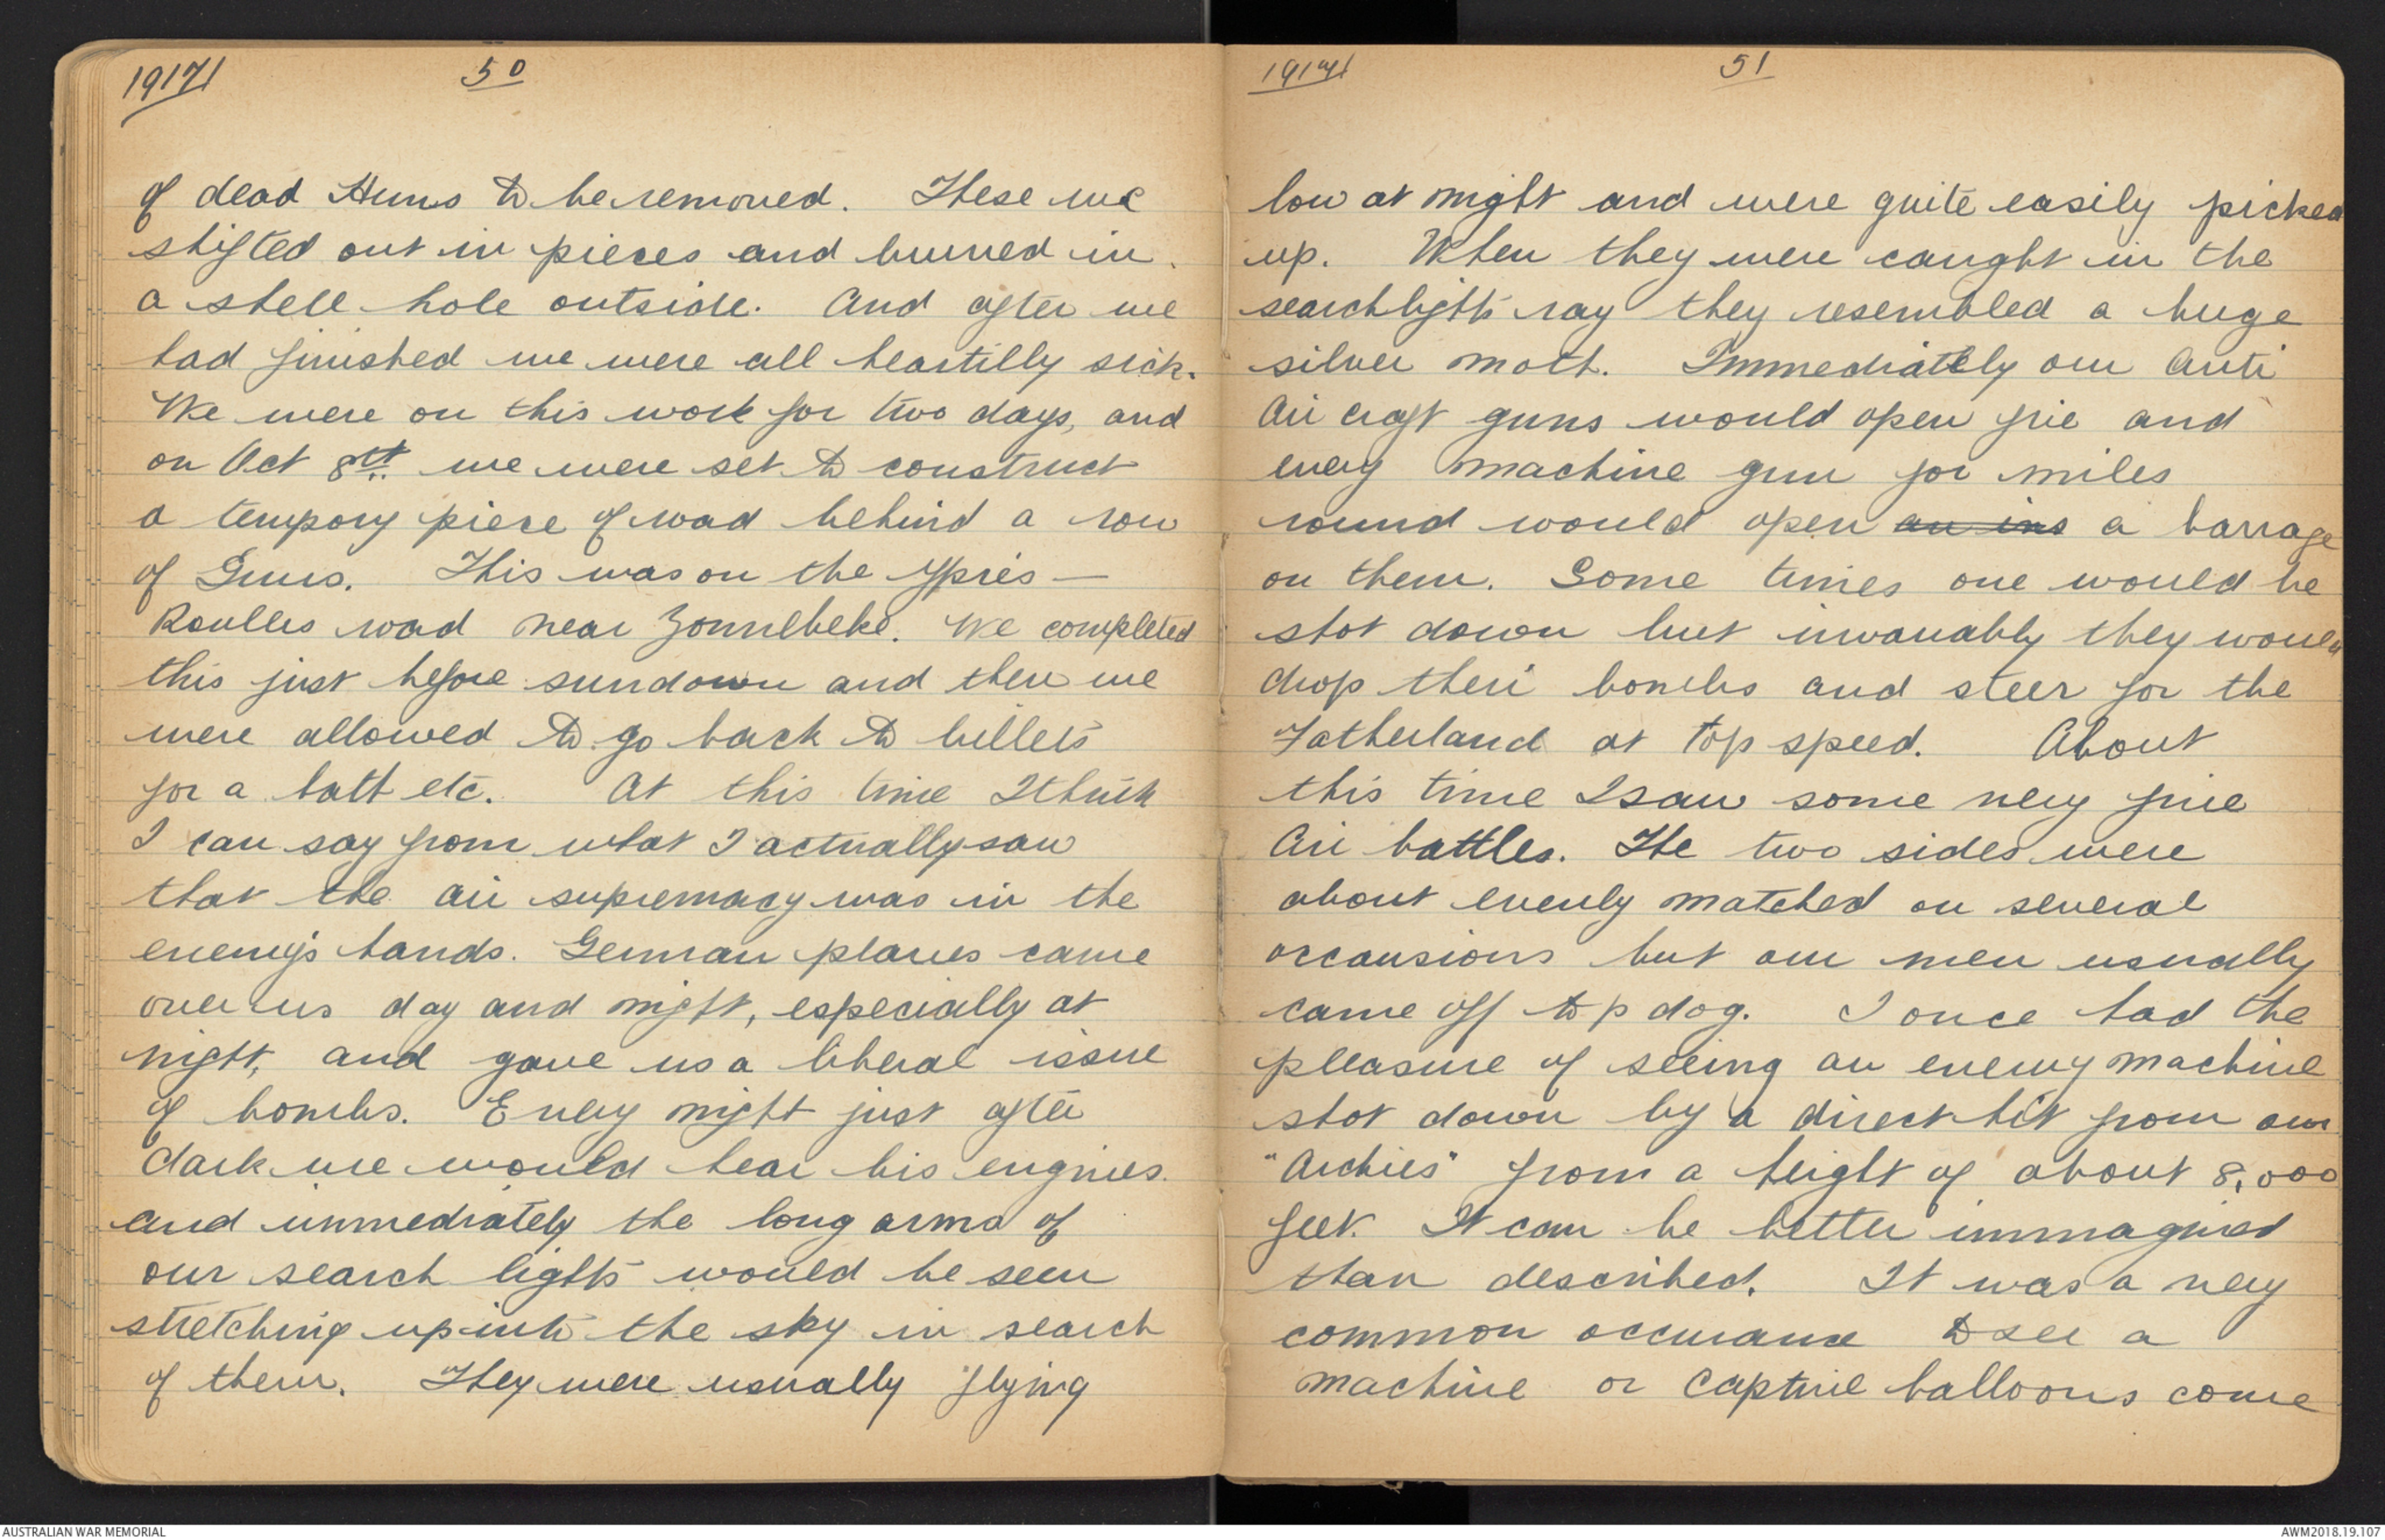 1917/
50
of dead Huns to be removed. These we
shifted out in pieces and burried in
a shell hole outside. And after we
had finished we were all heartilly sick.
We were on this work for two days, and
on Oct 8th. we were set to construct
a tempory piece of road behind a row
of Guns. This was on the Ypres —
Roulles road near Zonnebeke. We completed
this just before sundown and then we
were allowed to go back to billets
for a bath etc. At this time I think
I can say from what I actually saw
that the air supremacy was in the
enemy's hands. German planes came
over us day and night, especially at
night, and gave us a liberal issue
of bombs. Every night just after
dark we would hear his engines.
and immediately the long arms of
our search lights would be seen
stretching up into the sky in search
of them. They were usually flying
1917/
51
low at night and were quite easily picked
up. When they were caught in the
searchlights ray they resembled a huge
silver moth. Immediately our Anti
Air craft guns would open fire and
every machine gun for miles
round would open an ins a barrage
on them. Some times one would be
shot down but invariably they would
drop their bombs and steer for the
Fatherland at top speed. About
this time I saw some very fine
Air battles. The two sides were
about evenly matched on several
occausions but our men usually
came off top dog. I once had the
pleasure of seeing an enemy machine
shot down by a direct hit from our
"Archies" from a height of about 8,000
feet. It can be better immagined
than described. It was a very
common occurance to see a
machine or captive balloons come
AUSTRALIAN WAR MEMORIAL
AWM2018.19.107